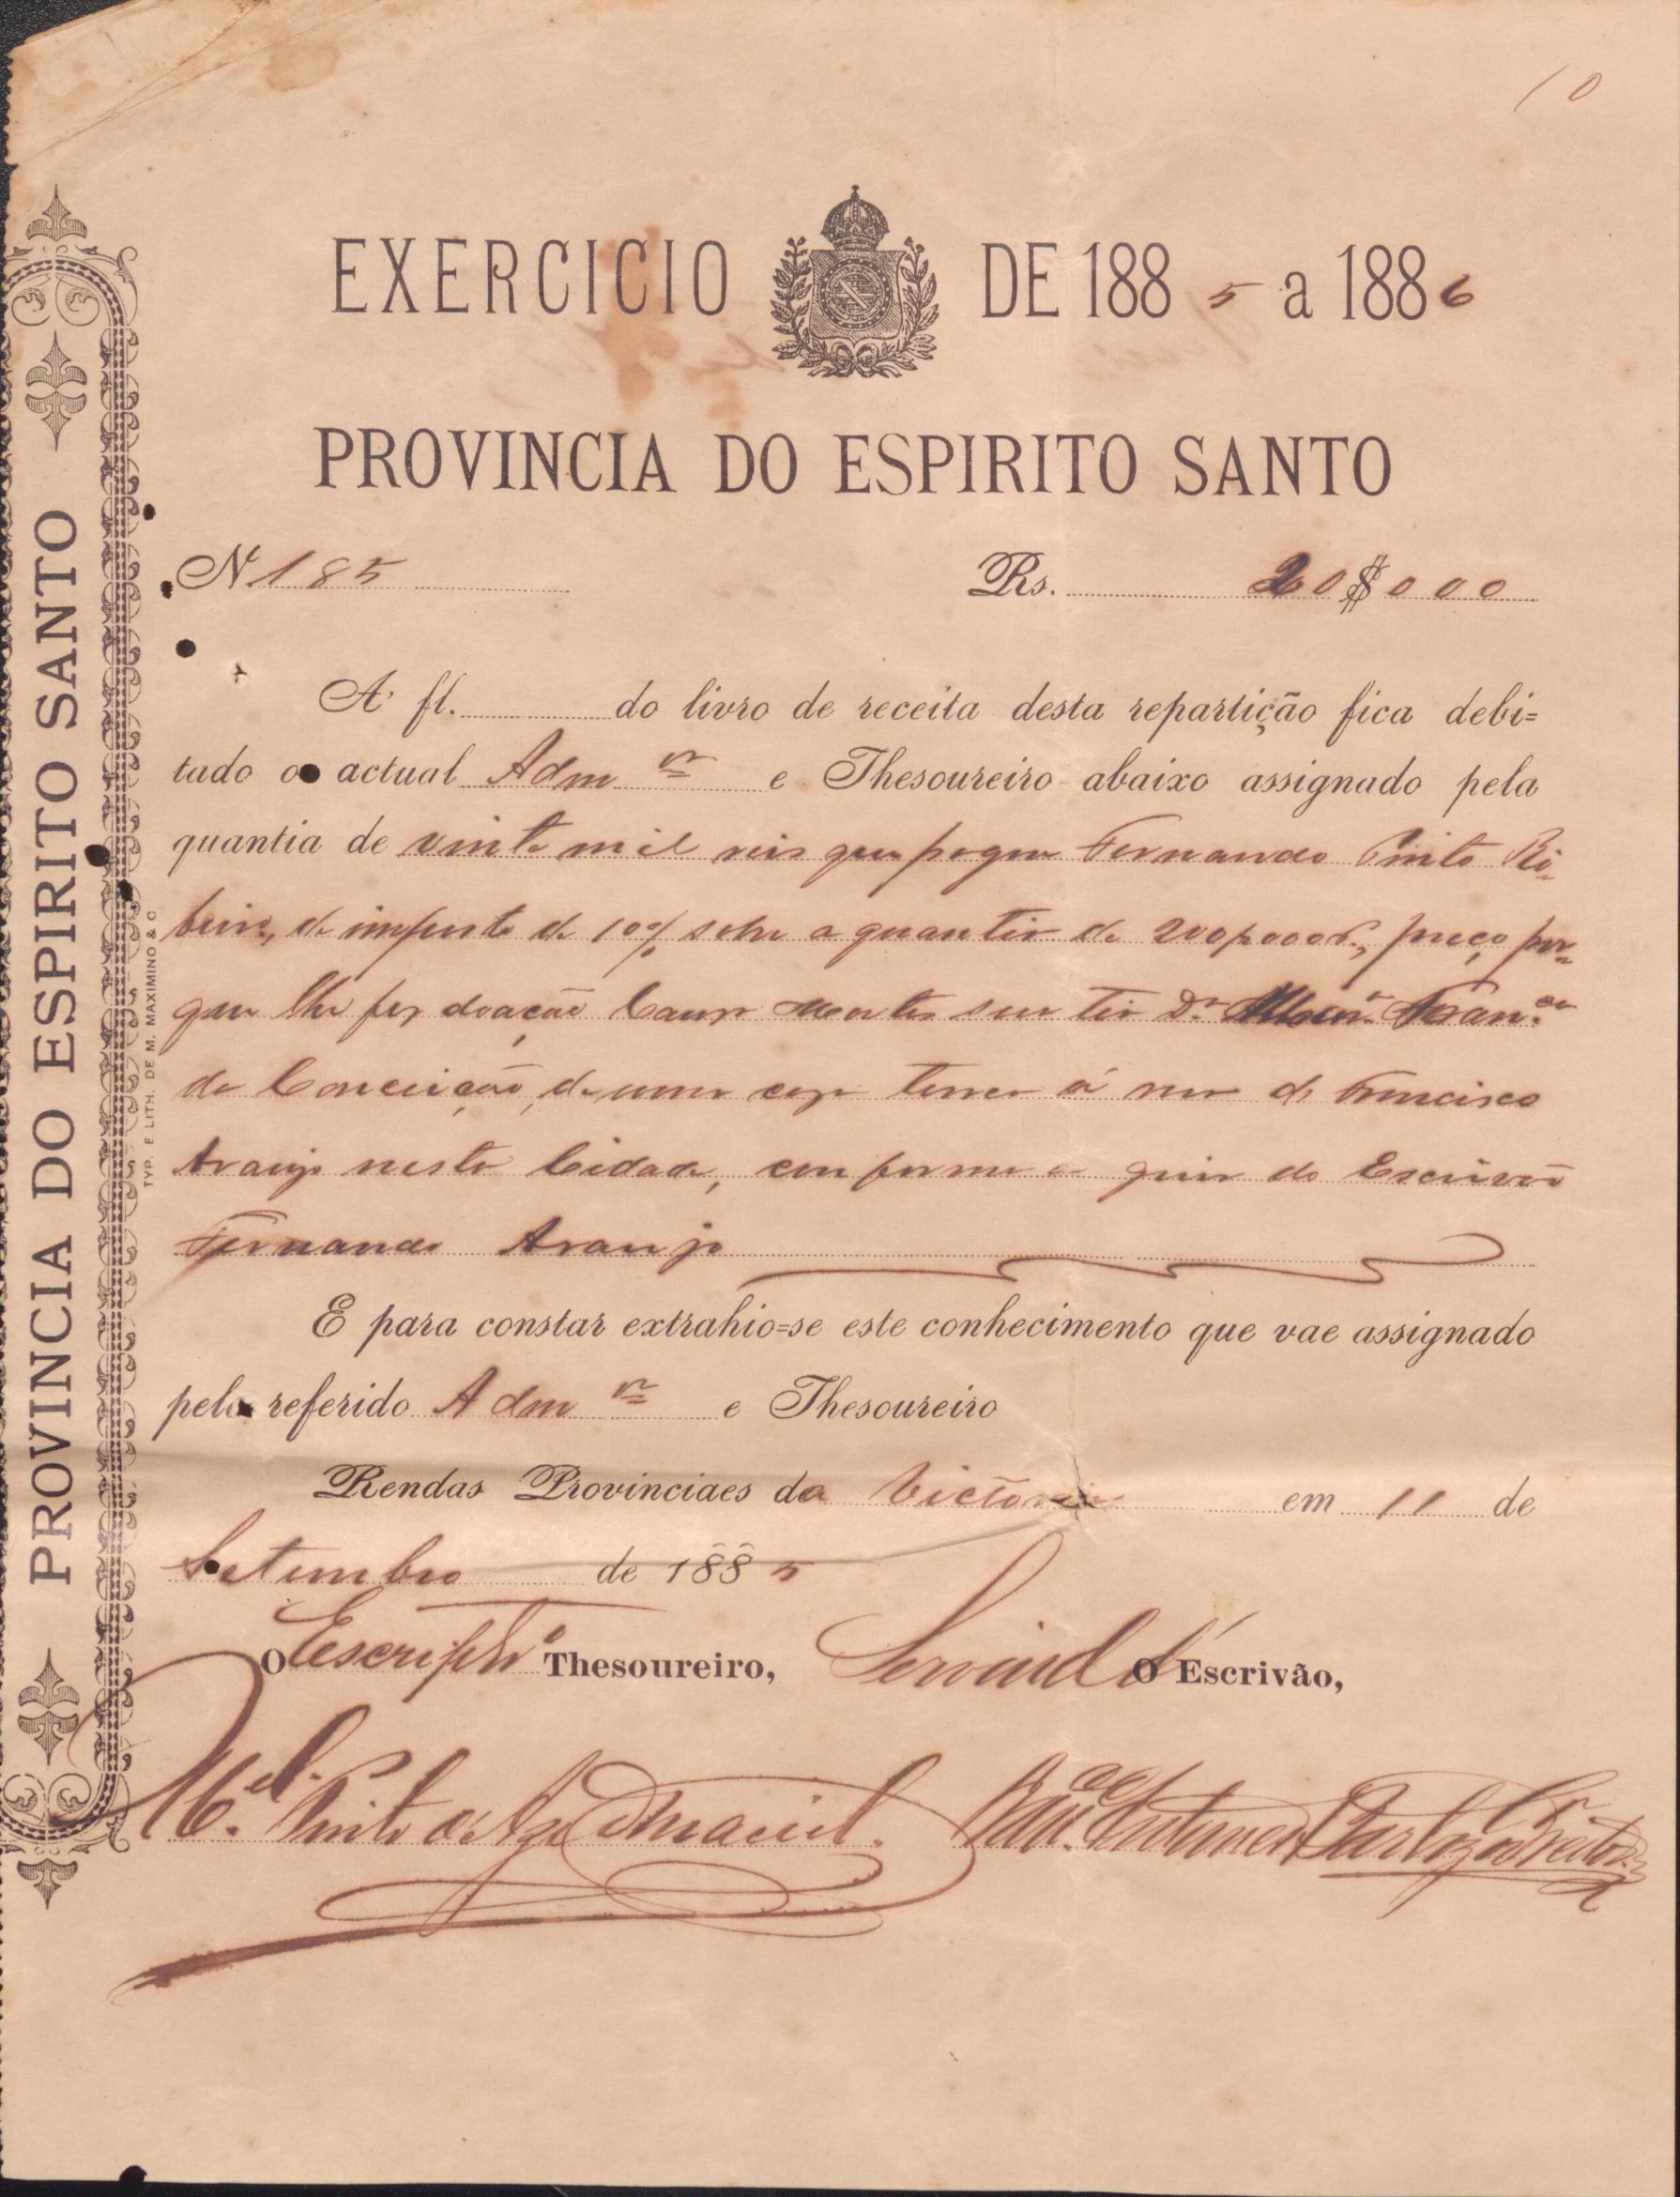 10
EXERCICIO DE 1885 a 1886
PROVINCIA DO ESPIRITO SANTO
N 185 Rs. 20$000
A' fl. do livro de receita desta repartição fica debi=
tado o actual Adm.or e Thesoureiro abaixo assignado pela
quantia de vinte mil reis que pagou Fernando Pinto Ri-
beiro, de imposto de 10% sobre a quantia de 200$000 rs., preço por-
que lhe fez doação causa Mortis sua tia D.a Fran.ca
da Conceição, de uma casa terrea á rua de Francisco
Araujo nesta Cidade, conforme a guia do Escrivão
Fernando Araujo
E para constar extrahio=se este conhecimento que vae assignado
pelo referido Adm.or e Thesoureiro
Rendas Provinciaes da Victoria em 11 de
Setembro de 1885
O Escript.o Thesoureiro, Servind O Escrivão,
M.el Pinto de Az.o Maciel.
PROVINCIA DO ESPIRITO SANTO
TYP. E LITH. DE M. MAXIMINO & C